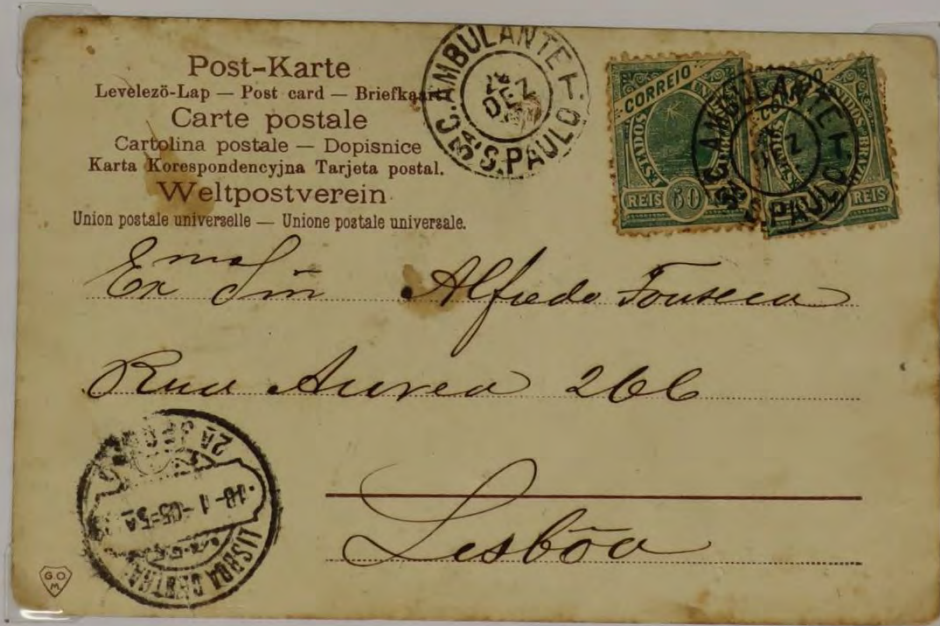 Post-Karte
Levelező-Lap — Post card — Briefkaart
Carte postale
Cartolina postale — Dopisnice
Karta Korespondencyjna Tarjeta postal.
Weltpostverein
Union postale universelle — Unione postale universale.
AMBULANTE
DEZ
S. PAULO
CORREIO
ESTADOS
REIS 50
AMBULANTE
S. PAULO
REIS
Exmo Snr Alfredo Fonseca
Rua Aurea 266
Lisbôa
18-1-05-5A
LISBOA CENTRAL
G.O.
M